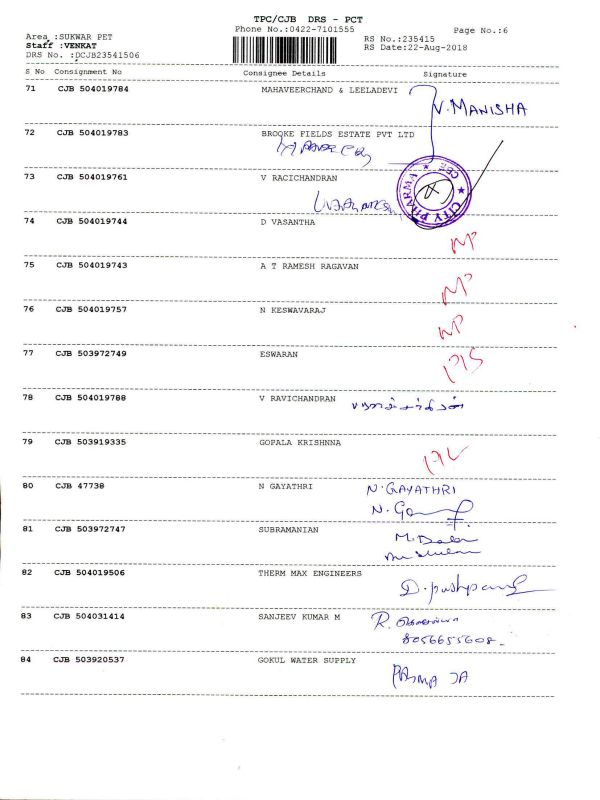 TPC/CJB DRS - PCT
Phone No.:0422-7101555
Page No.:6
Area :SUKWAR PET
RS No.:235415
Staff :VENKAT
RS Date:22-Aug-2018
DRS No. :DCJB23541506
S No Consignment No Consignee Details Signature
71 CJB 504019784 MAHAVEERCHAND & LEELADEVI
V.MANISHA
72 CJB 504019783 BROOKE FIELDS ESTATE PVT LTD
73 CJB 504019761 V RACICHANDRAN
CITY PHARMA CBE
74 CJB 504019744 D VASANTHA
75 CJB 504019743 A T RAMESH RAGAVAN
76 CJB 504019757 N KESWAVARAJ
77 CJB 503972749 ESWARAN
78 CJB 504019788 V RAVICHANDRAN
79 CJB 503919335 GOPALA KRISHNNA
80 CJB 47738 N GAYATHRI N.GAYATHRI
81 CJB 503972747 SUBRAMANIAN
82 CJB 504019506 THERM MAX ENGINEERS
83 CJB 504031414 SANJEEV KUMAR M R.
8056655608
84 CJB 503920537 GOKUL WATER SUPPLY